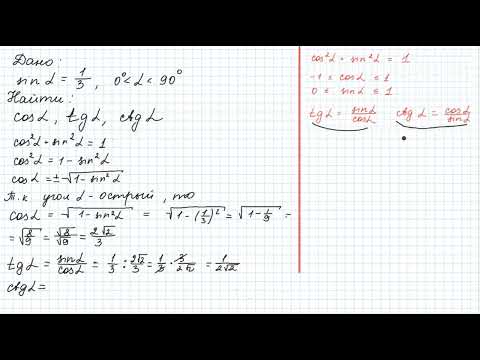 Дано:
sin α = 1/3, 0° < α < 90°
Найти:
cos α, tg α, ctg α
cos²α + sin²α = 1
cos²α = 1 - sin²α
cos α = ±√(1 - sin²α)
Т.к угол α - острый, то
cos α = √(1 - sin²α) = √(1 - (1/3)²) = √(1 - 1/9) =
= √(8/9) = √8/√9 = 2√2/3
tg α = sin α/cos α = 1/3 : 2√2/3 = 1/3 · 3/2√2 = 1/2√2
ctg α =
cos²α + sin²α = 1
-1 ≤ cos α ≤ 1
0 ≤ sin α ≤ 1
tg α = sin α/cos α ctg α = cos α/sin α